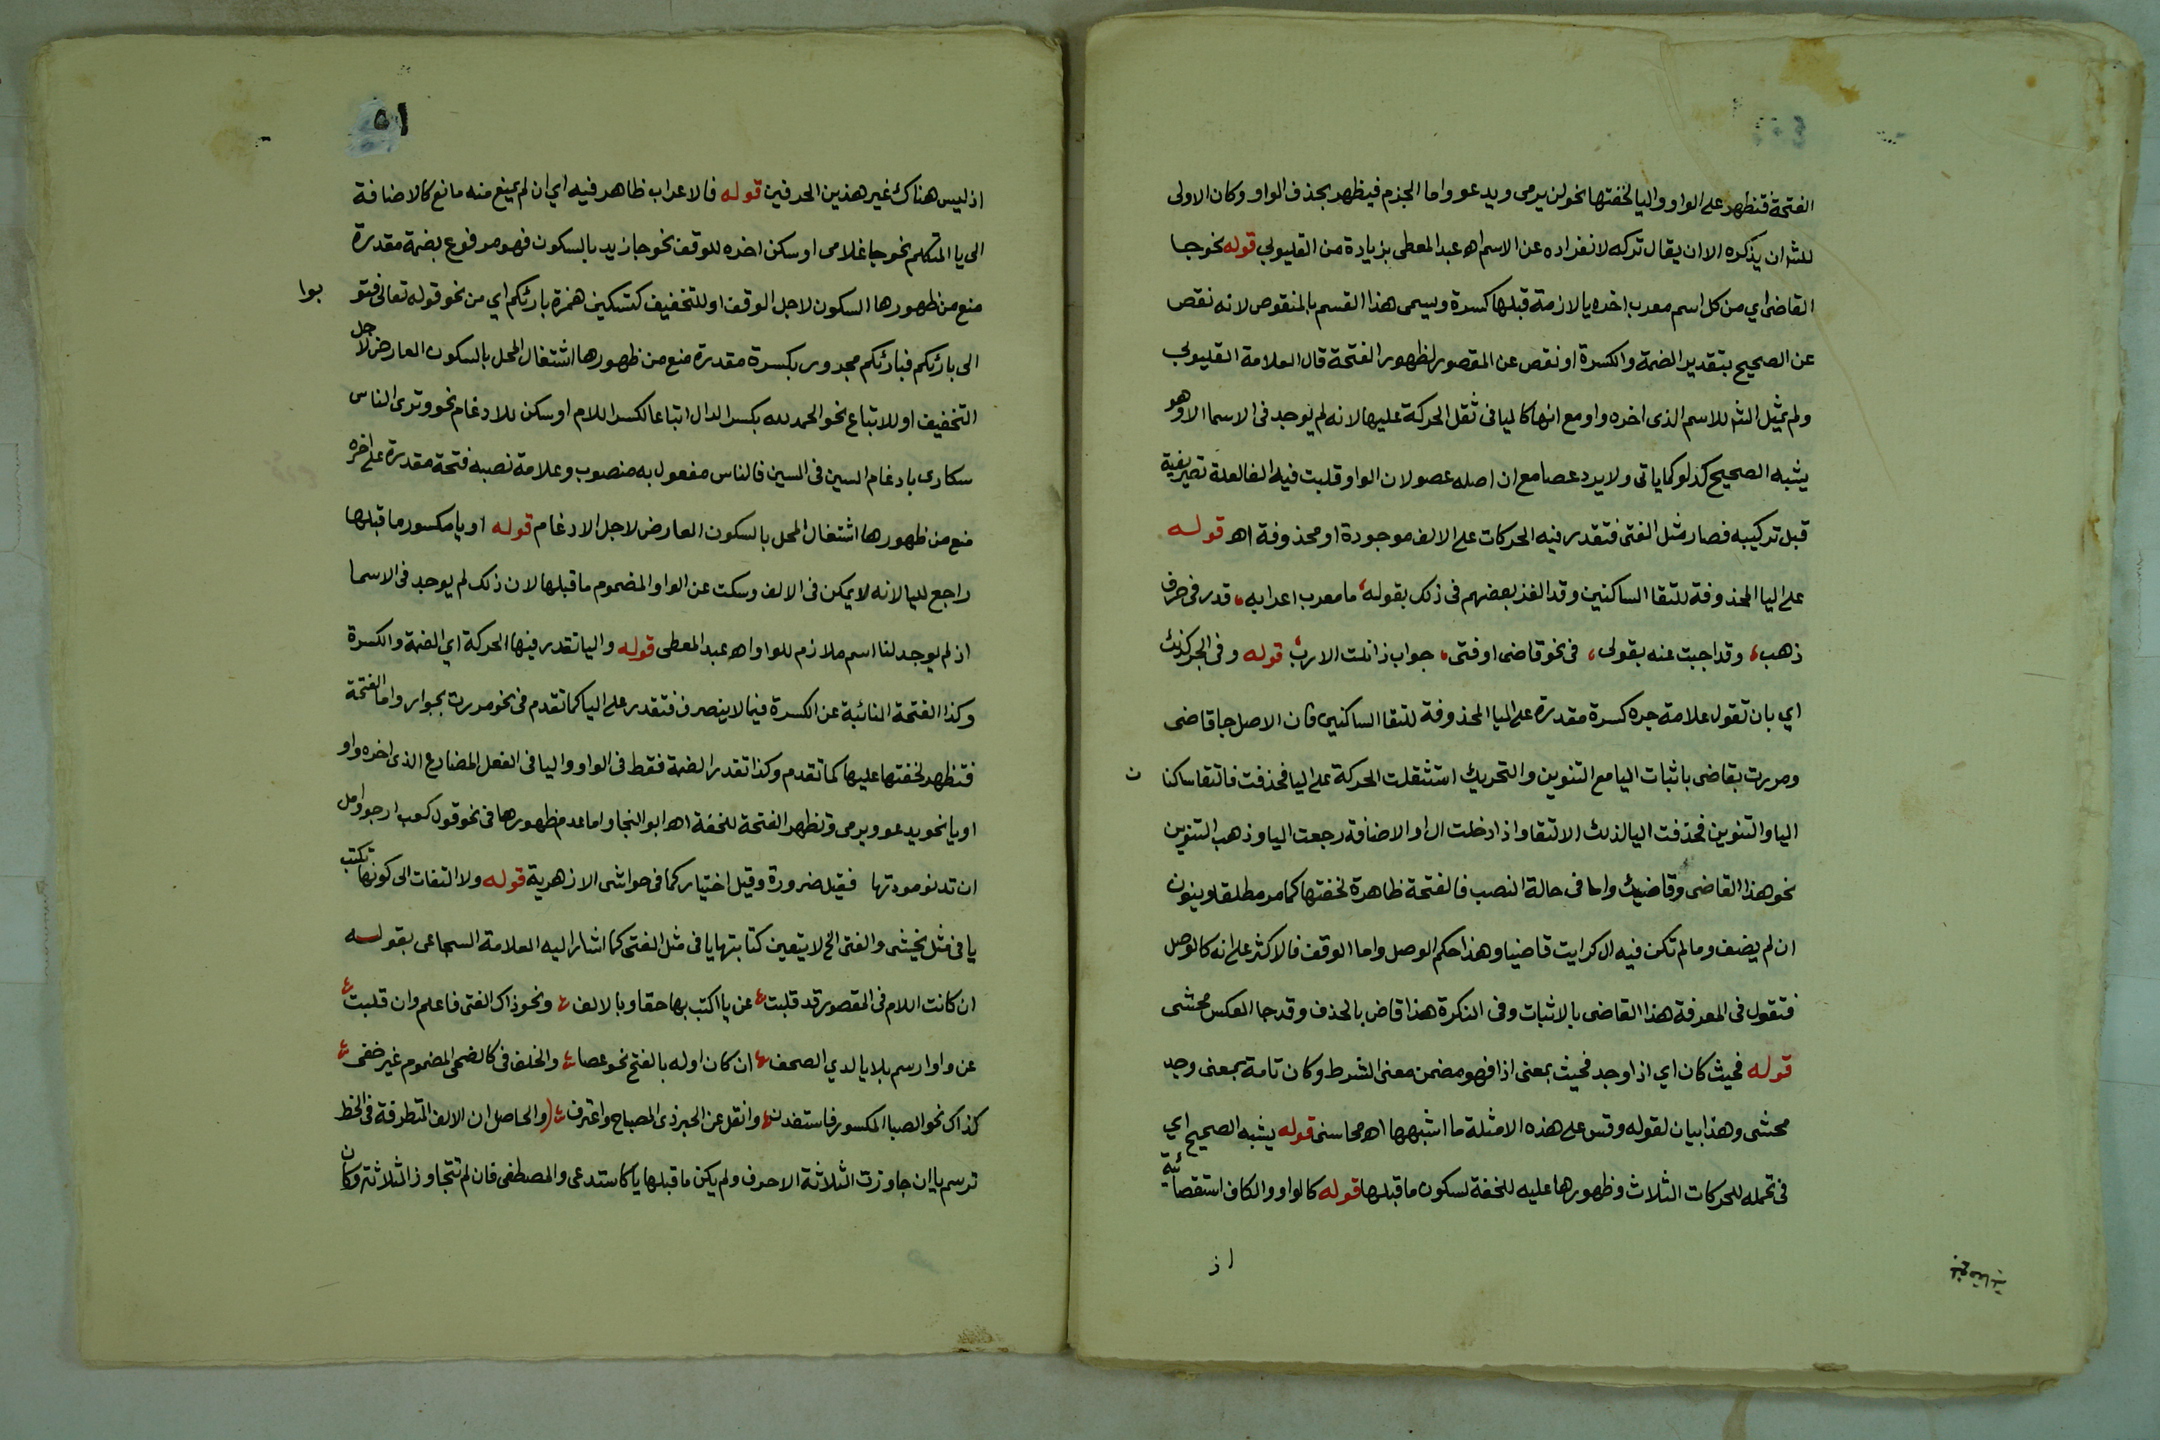 الفتحة فتظهر على الواو واليا لخفتها نحو لن يرمى ويدعو واما الجزم فيظهر بحذف الواو وكان الاولى
للشـ ان يذكره الا ان يقال تركه لانفراده عن الاسم اهـ عبد المعطى بزيادة من القليوبي قوله نحو جا
القاضى اي من كل اسم معرب اخره يا لازمة قبلها كسرة ويسمى هذا القسم بالمنقوص لانه نقص
عن الصحيح بتقدير الضمة والكسرة او نقص عن المقصور لظهور الفتحة قال العلامة القليوبي
ولم يمثل الشـ للاسم الذى اخره واو مع انها كاليا فى ثقل الحركة عليها لانه لم يوجد فى الاسما الا وهو
يشبه الصحيح كدلو كما ياتى ولا يرد عصا مع ان اصله عصو لان الواو قلبت فيه الفا لعلة تصريفية
قبل تركيبه فصار مثل الفتى فتقدر فيه الحركات على الالف موجودة او محذوفة اهـ قوله
على اليا المحذوفة للتقا الساكنين وقد الغز بعضهم فى ذلك بقوله، ما معرب اعرابه، قدر فى حرف
ذهب، وقد اجبت عنه بقولى، فى نحو قاضى او فتى، جواب ذا نلت الارب، قوله وفى الجر كذلك
اي بان تقول علامة جره كسرة مقدرة على اليا المحذوفة لتقا الساكنين فان الاصل جا قاضى
ومررت بقاضى باثبات اليا مع التنوين والتحريك استثقلت الحركة على اليا فحذفت فالتقا ساكنا ن
اليا والتنوين فحذفت اليا لذلك الالتقا واذا دخلت ال او الاضافة رجعت اليا وذهب التنوين
نحو هذا القاضى وقاضيك واما فى حالة النصب فالفتحة ظاهرة لخفتها كما مر مطلقا وينون
ان لم يضف وما لم تكن فيه ال كرايت قاضيا وهذا حكم الوصل واما الوقف فالاكثر على انه كالوصل
فتقول فى المعرفة هذا القاضى بالاثبات وفى النكرة هذا قاض بالحذف وقد جا العكس محشى
قوله فحيث كان اي اذا وجد فحيث بمعنى اذا فهو مضمن معنى الشرط وكان تامة بمعنى وجد
محشى وهذا بيان لقوله وقس على هذه الامثلة ما اشبهها اهـ محاسنى قوله يشبه الصحيح اي
فى تحمله للحركات الثلاث وظهورها عليه للخفة لسكون ما قبلها قوله كالواو والكاف استقصائية
اذ
اذ ليس هناك غير هذين الحرفين قوله فالاعراب ظاهر فيه اي ان لم يمنع منه مانع كالاضافة
الى يا المتكلم نحو جا غلامى او سكن اخره للوقف نحو جا زيد بالسكون فهو مرفوع بضمة مقدرة
منع من ظهورها السكون لاجل الوقف او للتخفيف كتسكين همزة بارئكم اي من نحو قوله تعالى فتو بوا
الى بارئكم فبارئكم مجرور بكسرة مقدرة منع من ظهورها اشتغال المحل بالسكون العارض لاجل
التخفيف او للاتباع نحو الحمد لله بكسر الدال اتباعا لكسر اللام او سكن للادغام نحو وترى الناس
سكارى بادغام السين فى السين فالناس مفعول به منصوب وعلامة نصبه فتحة مقدرة على اخره
منع من ظهورها اشتغال المحل بالسكون العارض لاجل الادغام قوله او يا مكسور ما قبلها
راجع لليا لانه لا يمكن فى الالف وسكت عن الواو المضموم ما قبلها لان ذلك لم يوجد فى الاسما
اذ لم يوجد لنا اسم ملازم للواو اهـ عبد المعطى قوله واليا تقدر فيها الحركة اي الضمة والكسرة
وكذا الفتحة النائبة عن الكسرة فيما لا ينصرف فتقدر على اليا كما تقدم فى نحو مررت بجوار واما الفتحة
فتظهر لخفتها عليها كما تقدم وكذا تقدر الضمة فقط فى الواو واليا فى الفعل المضارع الذى اخره واو
او يا نحو يدعو ويرمى وتظهر الفتحة للخفة اهـ ابو النجا واما عدم ظهورها فى نحو قول كعب ارجو وامل
ان تدنو مودتها فقيل ضرورة وقيل اختيار كما فى حواشى الازهرية قوله ولا التفات الى كونها تكتب
يا فى مثل يخشى والفتى الخ لا يتعين كتابتها يا فى مثل الفتى كما اشار اليه العلامة السجاعى بقوله
ان كانت اللام فى المقصور قد قلبت عن يا اكتب بها حقا وبالالف ونحو ذاك الفتى فاعلم وان قلبت
عن واو ارسم بلا يا لدي الصحف ان كان اوله بالفتح نحو عصا والخلف فى كالضحى المضموم غير خفى
كذاك نحو الصبا المكسور فاستفدن وانقل عن الحبر ذى المصباح واغترف والحاصل ان الالف المتطرفة فى الخط
ترسم يا ان جاوزت الثلاثة الاحرف ولم يكن ما قبلها يا كاستدعى والمصطفى فان لم تتجاوز الثلاثة وكان